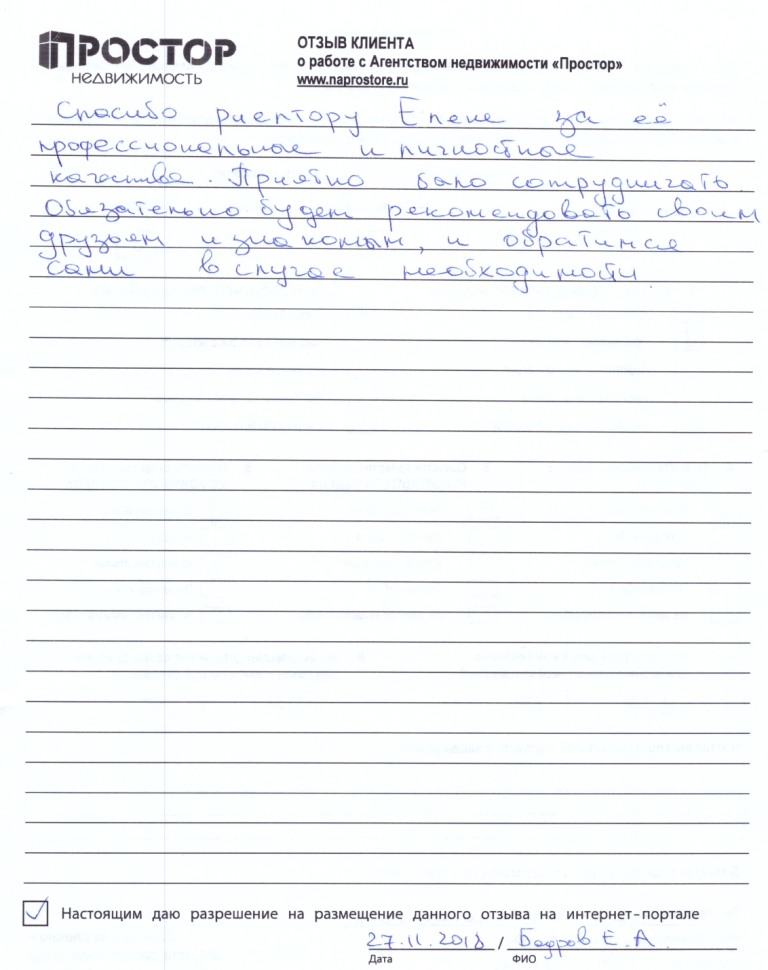 ПРОСТОР
НЕДВИЖИМОСТЬ
ОТЗЫВ КЛИЕНТА
о работе с Агентством недвижимости «Простор»
www.naprostore.ru
Спасибо риелтору Елене за её
профессиональные и личностные
качества. Приятно было сотрудничать.
Обязательно будем рекомендовать своим
друзьям и знакомым, и обратимся
сами в случае необходимости.
Настоящим даю разрешение на размещение данного отзыва на интернет-портале
27.11.2018 / Бодров Е.А.
Дата ФИО